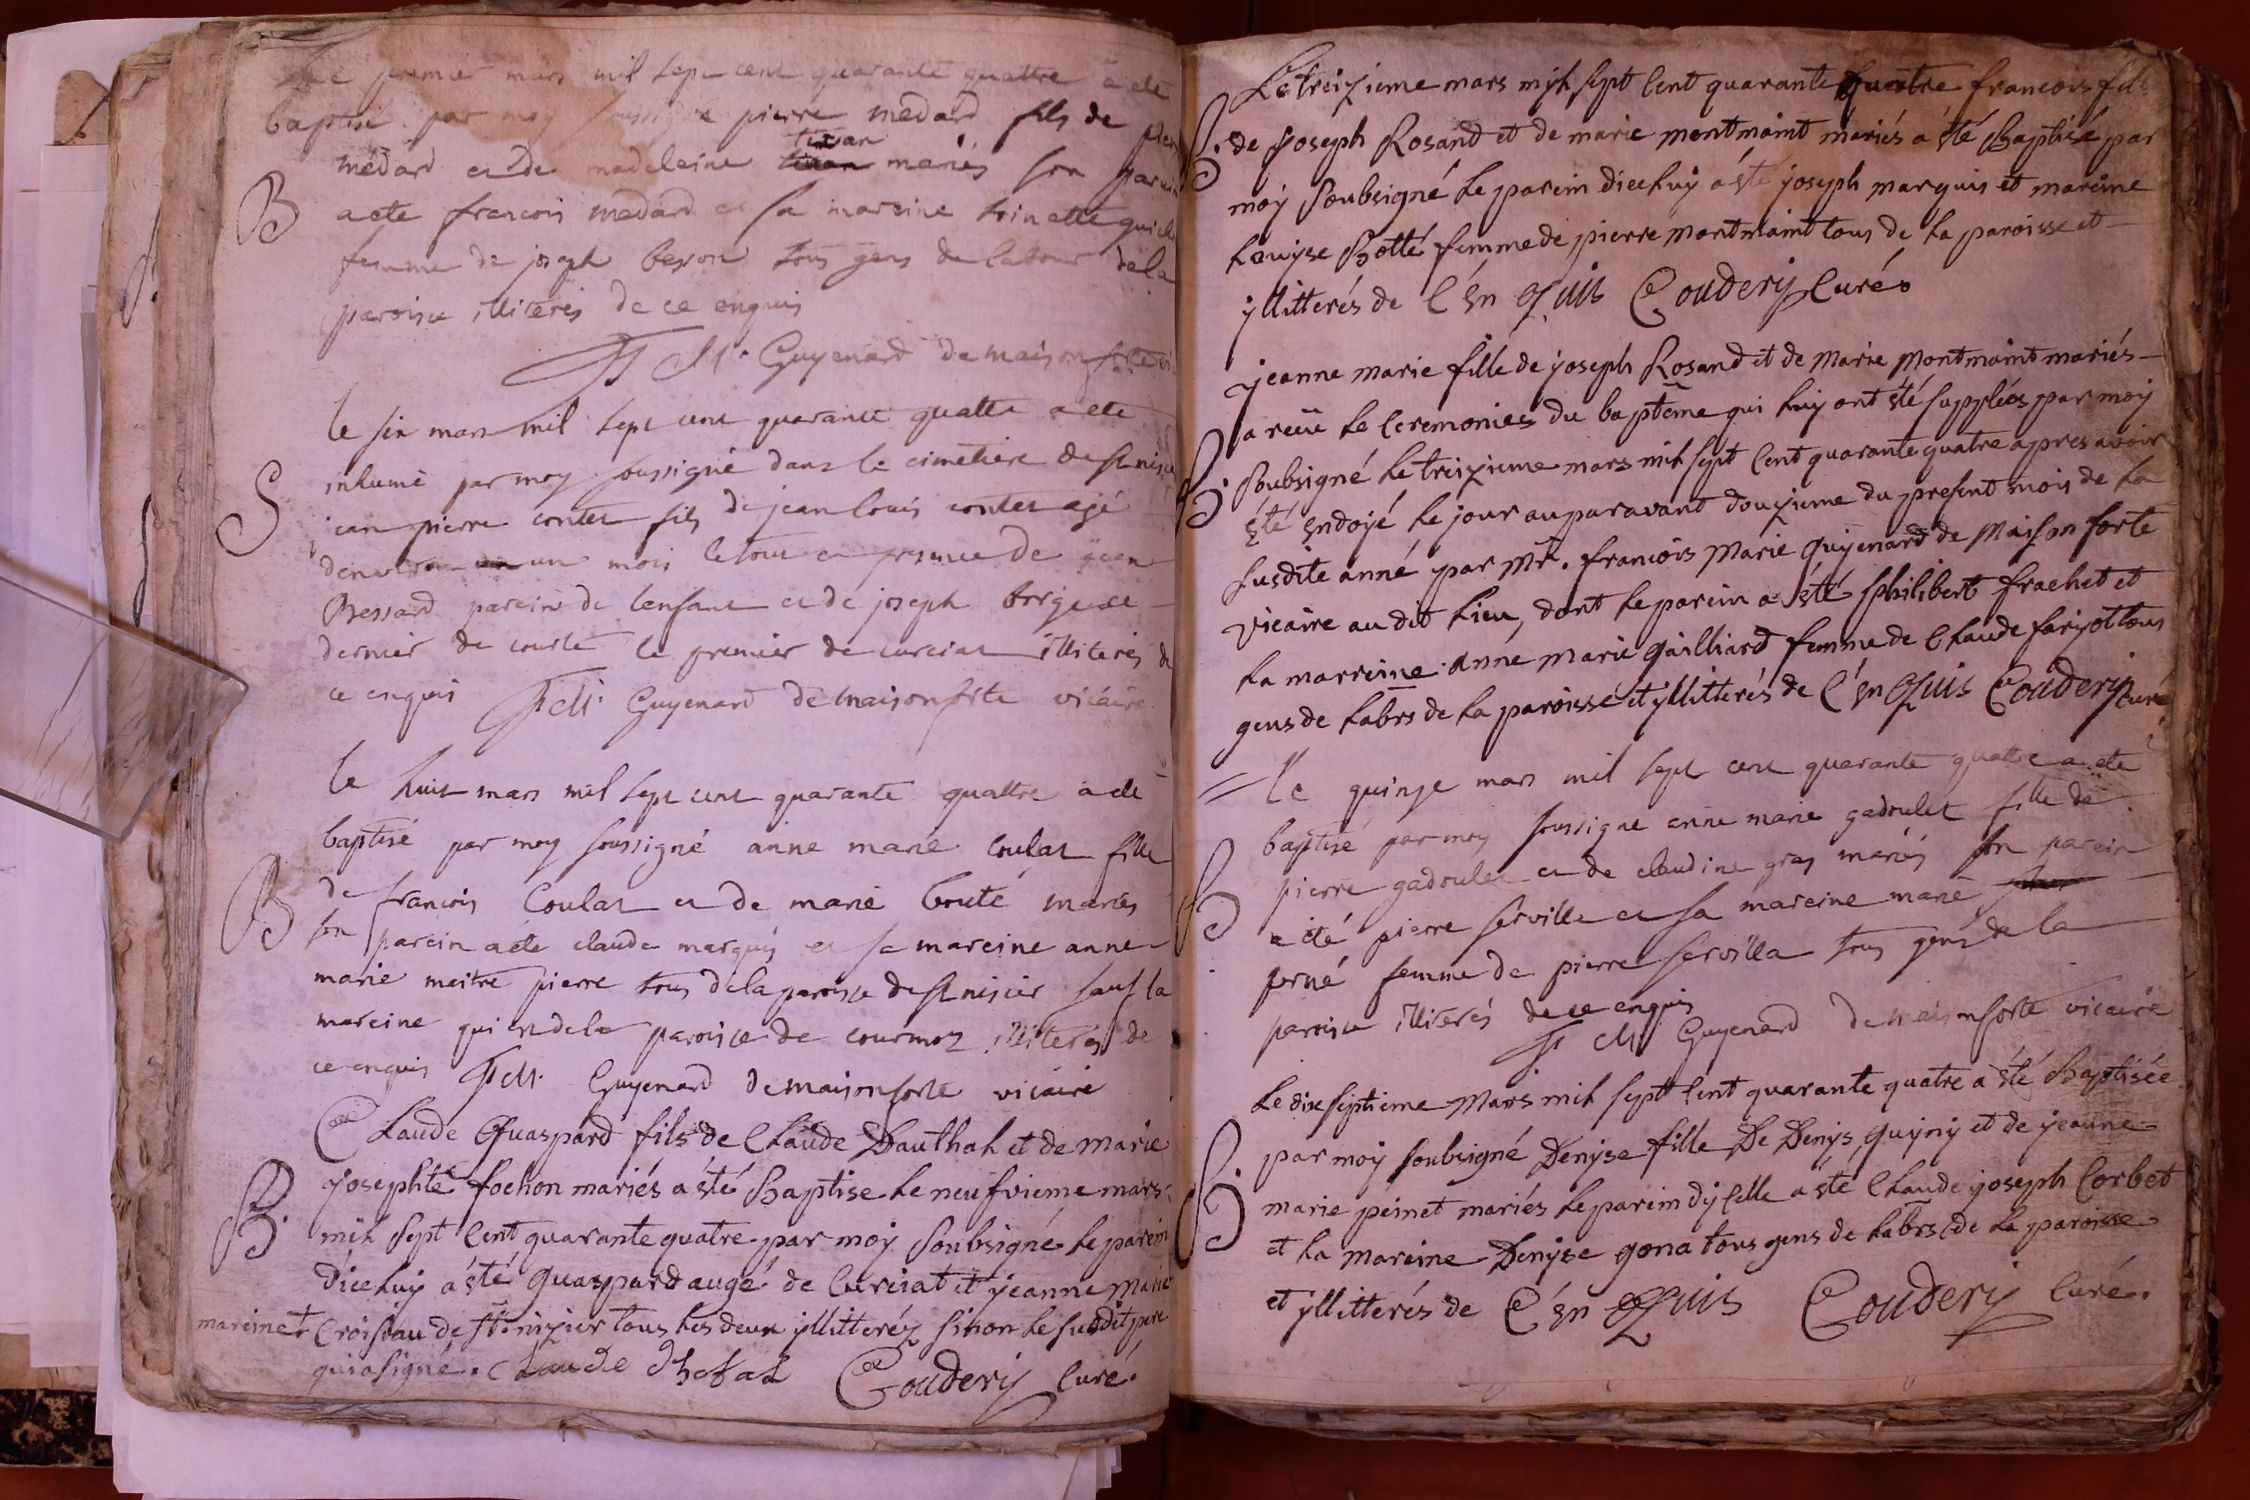 Le premier mars mil sept cent quarante quattre a ete
baptisé par moy soussigné pierre medard fils de pierre
tivan
medard et de madeleine mariés son parein
B
a ete francois medard et sa mareine toinette
femme de joseph tous gens de labour de la
paroisse illiterés de ce enquis
F M. Guyenard de maisonforte
le six mars mil sept cent quarante quattre a ete
inhumé par moy soussigné dans le cimetiere de st nisier
S
jean pierre contet fils de jean louis contet agé
denviron un mois le tout en presence de jean
Bessard parein de lenfant et de joseph
dernier de le premier de curciat illiterés de
ce enquis F M. Guyenard de maisonforte vicaire
le huit mars mil sept cent quarante quattre a ete
baptisé par moy soussigné anne marie coulat fille
B
de francois Coulat et de marie bouté mariés
son parein a ete claude marquis et sa mareine anne
marie meitre pierre tous de la paroisse de st nisier sauf la
mareine qui est de la paroisse de courmoz illiterés de
ce enquis F M. Guyenard de maisonforte vicaire
Claude Guaspard fils de Claude Dauthal et de marie
B.
yosephte fochon mariés a été Baptise le neufvieme mars
mil sept cent quarante quatre par moy soubsigné le parein
diceluy a été Guaspard augé de Curciat et yeanne Marie
mareine
Croiseau de st. nizier tous les deux yllitteréz sinon le susdit pere
qui a signé. Claude Coudery Curé.
Le treizieme mars mil sept cent quarante quatre francois fils
B.
de Joseph Rosand et de marie montmaint mariés a été Baptisé par
moy soubsigné le parein diceluy a été joseph marquis et mareine
Louyse Botté femme de pierre montmaint tous de la paroisse et
yllitterés de Cén Quis Coudery Curé.
yeanne marie fille de joseph Rosand et de Marie Montmaint mariés
a reçu le Ceremonies du baptême qui luy ont été suppléés par moy
B.
soubsigné le treizieme mars mil sept cent quarante quatre apres avoir
été endoyé le jour auparavant douzieme du present mois de la
susdite anné par Mr. francois Marie Guyenard de Maison forte
vicaire au dit lieu, dont le parein a été philibert frachet et
la marreine anne marie Gailliard femme de Claude fariot tous
gens de labrs de la paroisse et yllitterés de Cén Quis Coudery Curé
Le quinze mars mil sept cent quarante quattre a ete
baptisé par moy soussigné anne marie gadoulet fille de
B
pierre gadoulet et de claudine gras mariés son parein
a été pierre servilla et sa mareine marie
perné femme de pierre servilla tous gens de la
paroisse illiterés de ce enquis
F M Guyenard de maisonforte vicaire
Le dix septieme Mars mil sept cent quarante quatre a été Baptisée
par moy soubsigné Denyse fille De Denys quyny et de yeanne
B.
marie peinet mariés le parein dycelle a été Claude yoseph Corbet
et la mareine Denyse gona tous gens de labrs de la paroisse
et yllitterés de Cén Quis Coudery Curé.